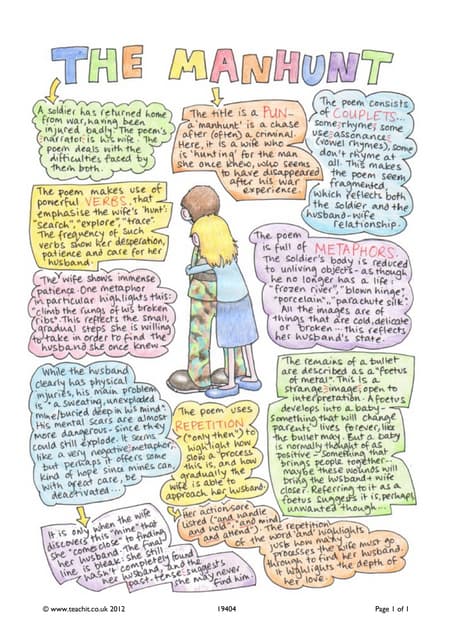 THE MANHUNT
A soldier has returned home
from war, having been
injured badly. The poem's
narrator is his wife. The
poem deals with the
difficulties faced by
them both.
The title is a PUN-
a 'manhunt' is a chase
after (often) a criminal.
Here, it is a wife who
is 'hunting' for the man
she once knew, who seems
to have disappeared
after his war
experience.
The poem consists
of COUPLETS...
some rhyme, some
use assonance
(vowel rhymes), some
don't rhyme at
all. This makes
the poem seem
fragmented,
which reflects both
the soldier and the
husband-wife
relationship.
The poem makes use of
powerful VERBS that
emphasise the wife's 'hunt':
"search", "explore", "trace".
The frequency of such
verbs show her desperation,
patience and care for her
husband.
The poem
is full of METAPHORS.
The soldier's body is reduced
to unliving objects - as though
he no longer has a life:
"frozen river", "blown hinge",
"porcelain", "parachute silk".
All the images are of
things that are cold, delicate
or broken - this reflects
her husband's state.
The wife shows immense
patience. One metaphor
in particular highlights this:
"climb the rungs of his broken
ribs". This reflects the small,
gradual steps she is willing
to take in order to find the
husband she once knew.
While the husband
clearly has physical
injuries, his main problem
is "a sweating, unexploded
mine/buried deep in his mind".
His mental scars are almost
more dangerous - since they
could still explode. It seems
like a very negative metaphor,
but perhaps it offers some
kind of hope since mines can,
with great care, be
deactivated...
The poem uses
REPETITION
("only then") to
highlight how
slow a process
this is, and how
gradually the
wife is able to
approach her husband.
The remains of a bullet
are described as a "foetus
of metal". This is a
strange image, open to
interpretation. A foetus
develops into a baby -
something that will change
parents' lives forever, like
the bullet may. But a baby
is normally thought of as
positive - something that
brings people together -
maybe these wounds will
bring the husband + wife
closer. Referring to it as a
foetus suggests it is, perhaps,
unwanted though...
It is only when the wife
discovers this "mine" that
she "come[s] close" to finding
her husband. The final
line is bleak: she still
hasn't completely found
her husband, and the
past-tense suggests
she may never
find him.
Her actions are
listed ("and handle
and hold", "and mind
and attend"). The repetition
of the word 'and' highlights
just how many
processes the wife must go
through to find her husband.
It highlights the depth of
her love.
© www.teachit.co.uk 2012
19404
Page 1 of 1